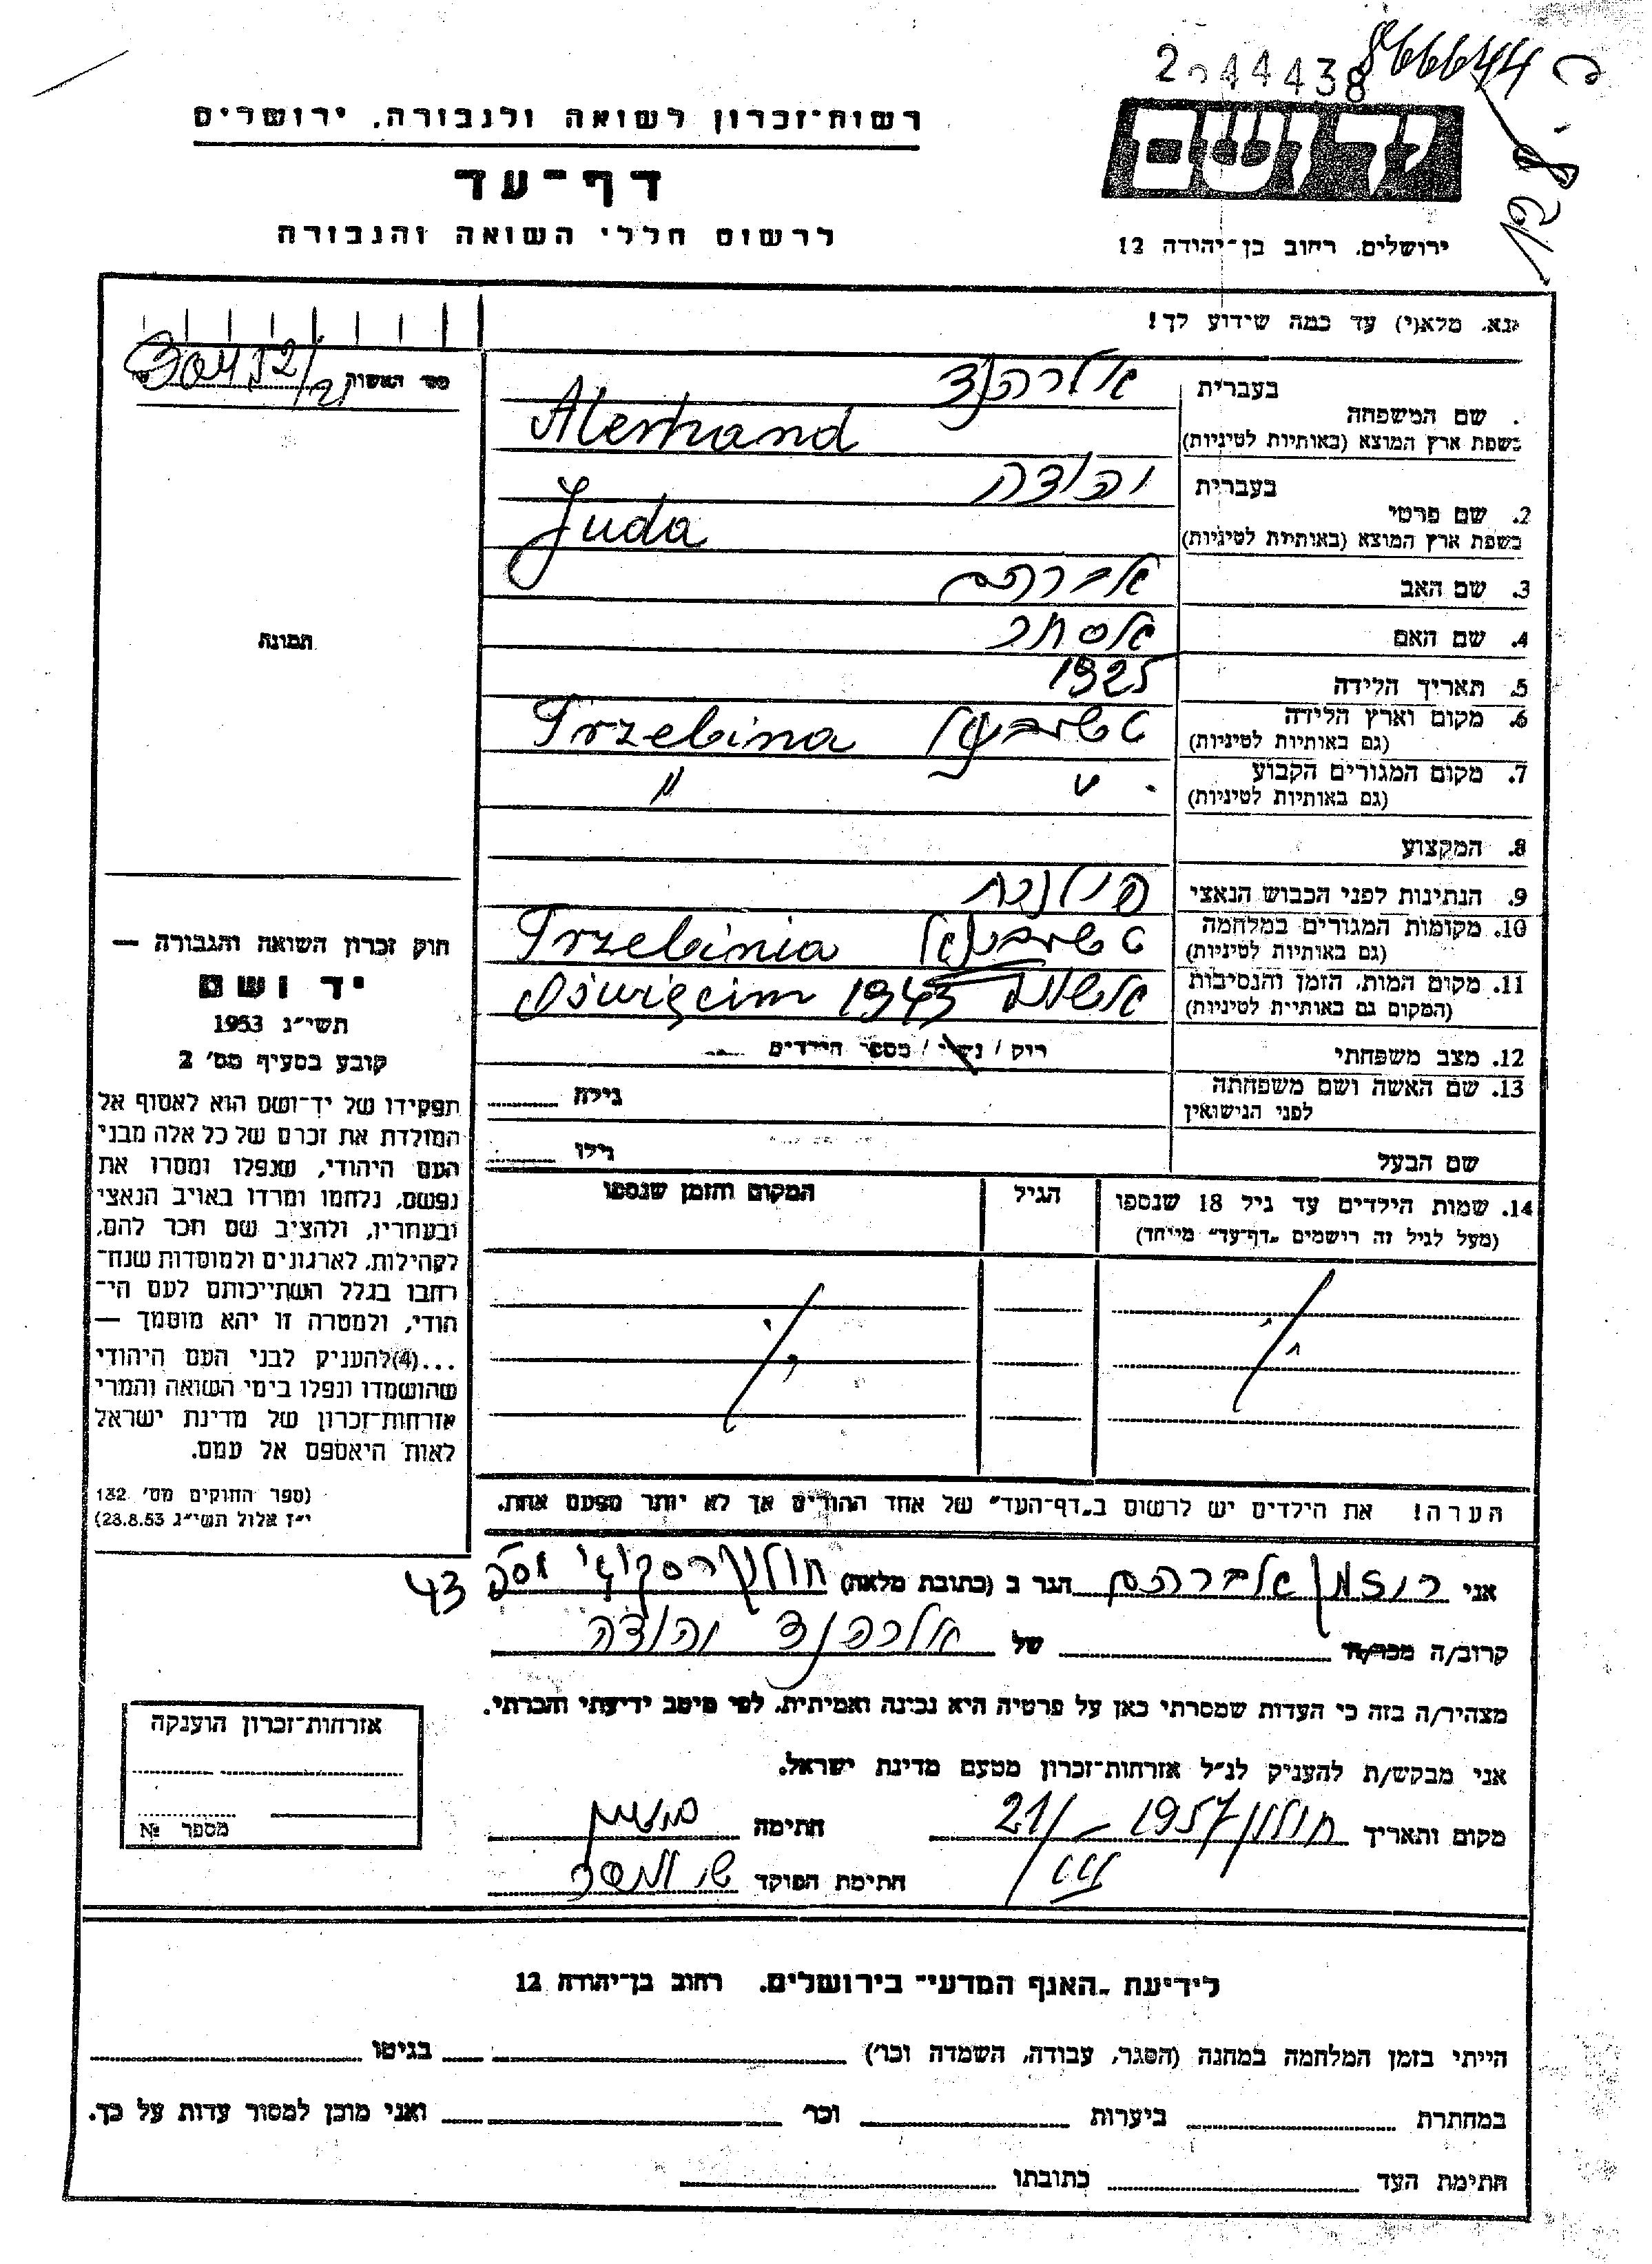 2044438
866644
128
רשות־זכרון לשואה ולגבורה. ירושלים
ידושם
דף־עד
לרשום חללי השואה והגבורה
ירושלים. רחוב בן־יהודה 12
נא. מלא(י) עד כמה שידוע לך!
מס׳ האשה
בעברית
שם המשפחה
Alerhand
בשפת ארץ המוצא (באותיות לטיניות)
יהודה
בעברית
2. שם פרטי
Juda
בשפת ארץ המוצא (באותיות לטיניות)
3. שם האב אברהם
4. שם האם אסתר
5. תאריך הלידה 1925
6. מקום וארץ הלידה
(גם באותיות לטיניות)
Trzebina
7. מקום המגורים הקבוע
(גם באותיות לטיניות)
"
8. המקצוע
9. הנתינות לפני הכבוש הנאצי פולנית
10. מקומות המגורים במלחמה
(גם באותיות לטיניות)
Trzebinia
11. מקום המות, הזמן והנסיבות
(המקום גם באותיות לטיניות)
Oświęcim 1943
12. מצב משפחתי
רוק / נשוי / מספר הילדים
13. שם האשה ושם משפחתה
לפני הנישואין
גילה
שם הבעל
גילו
14. שמות הילדים עד גיל 18 שנספו
(מעל לגיל זה רישמים „דף־עד״ מייחד)
הגיל
המקום והזמן שנספו
הערה! את הילדים יש לרשום ב„דף־העד״ של אחד ההורים אך לא יותר מפעם אחת.
תמונה
חוק זכרון השואה והגבורה —
יד ושם
תשי״ג 1953
קובע בסעיף מס׳ 2
תפקידו של יד־ושם הוא לאסוף אל
המולדת את זכרם של כל אלה מבני
העם היהודי, שנפלו ומסרו את
נפשם, נלחמו ומרדו באויב הנאצי
ובעוזריו, ולהציב שם וזכר להם,
לקהילות, לארגונים ולמוסדות שנח־
רבו בגלל השתייכותם לעם הי־
הודי, ולמטרה זו יהא מוסמך —
...(4)להעניק לבני העם היהודי
שהושמדו ונפלו בימי השואה והמרי
אזרחות־זכרון של מדינת ישראל
לאות היאספם אל עמם.
(ספר החוקים מס׳ 132
י״ז אלול תשי״ג 28.8.53)
אני רוזמן אברהם הגר ב (כתובת מלאה) חולון 43
קרוב/ה מכר/ה של אלרהנד יהודה
מצהיר/ה בזה כי העדות שמסרתי כאן על פרטיה היא נכונה ואמיתית. לפי מיטב ידיעתי והכרתי.
אני מבקש/ת להעניק לנ״ל אזרחות־זכרון מטעם מדינת ישראל.
מקום ותאריך חולון 1957 – 21/VII חתימה
חתימת הפוקד
אזרחות־זכרון הוענקה
מספר №
לידיעת „האגף המדעי״ בירושלים. רחוב בן־יהודה 12
הייתי בזמן המלחמה במחנה (הסגר, עבודה, השמדה וכר׳) בגיטו
במחתרת ביערות וכר׳ ואני מוכן למסור עדות על כך.
חתימת העד כתובתו